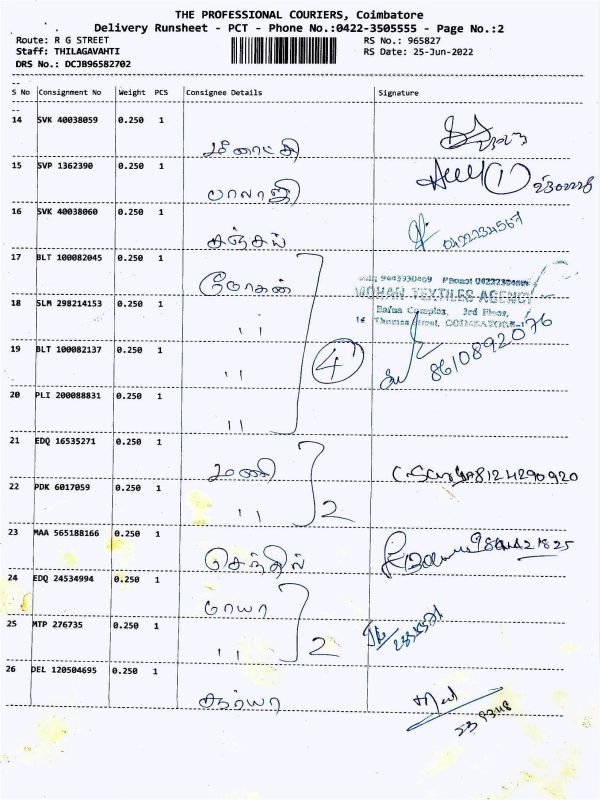 THE PROFESSIONAL COURIERS, Coimbatore
Delivery Runsheet - PCT - Phone No.:0422-3505555 - Page No.:2
Route: R G STREET
RS No.: 965827
Staff: THILAGAVAHTI
RS Date: 25-Jun-2022
DRS No.: DCJB96582702
S No Consignment No Weight PCS Consignee Details Signature
14 SVK 40038059 0.250 1
மீனாட்சி
15 SVP 1362390 0.250 1
பாலாஜி
16 SVK 40038060 0.250 1
சஞ்சய் 0422234567
17 BLT 100082045 0.250 1
மோகன்
MOHAN TEXTILES AGENCY
18 SLM 298214153 0.250 1
Bafna Complex, 3rd Floor,
16 Thomas Street, COIMBATORE-1
" 8610892076
19 BLT 100082137 0.250 1
" 4
20 PLI 200088831 0.250 1
"
21 EDQ 16535271 0.250 1
மணி 8124290920
22 PDK 6017059 0.250 1
" 2
23 MAA 565188166 0.250 1
செந்தில்
24 EDQ 24534994 0.250 1
25 MTP 276735 0.250 1
" 2
26 DEL 120504695 0.250 1
சூர்யா